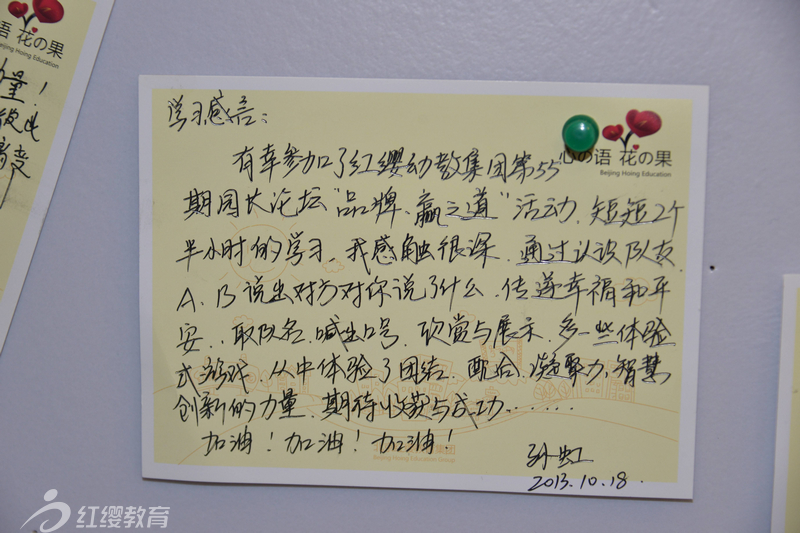 语 花の果
Beijing Hoing Education
量！
学习感言：
心の语 花の果
Beijing Hoing Education
有幸参加了红缨幼教集团第55
期园长论坛“品牌、赢之道”活动，短短2个
半小时的学习，我感触很深，通过认识队友，
A、B说出对方对你说了什么，传递幸福和平
安，取队名，喊出口号，欣赏与展示，多一些体验
式游戏，从中体验了团结、配合、凝聚力，智慧
创新的力量，期待收获与成功……
加油！加油！加油！
孙虹
2013.10.18.
红缨教育